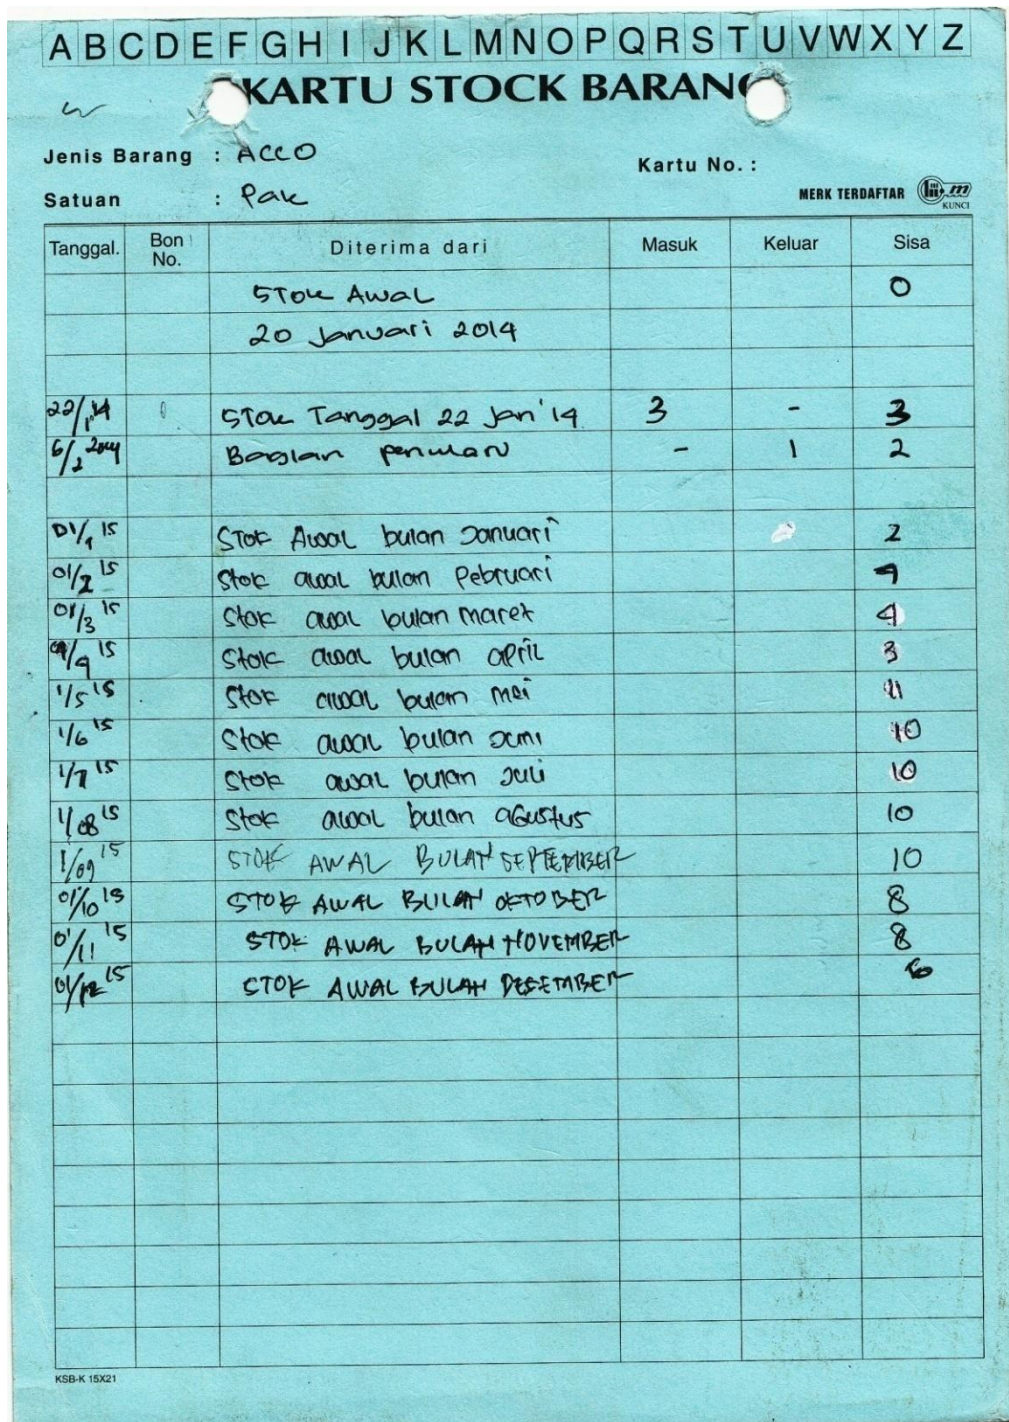 A B C D E F G H I J K L M N O P Q R S T U V W X Y Z
KARTU STOCK BARANG
Jenis Barang : ACCO
Kartu No. :
Satuan : Pak
MERK TERDAFTAR
KUNCI
Tanggal. Bon No. Diterima dari Masuk Keluar Sisa
STok AwaL 0
20 Januari 2014
22/1'14 STok Tanggal 22 Jan'14 3 - 3
6/2 2014 Bagian - 1 2
01/1 15 STok Awal bulan Januari 2
01/2 15 Stok awal bulan Pebruari
01/3 15 Stok awal bulan maret 4
01/4 15 Stok awal bulan april 3
1/5 15 Stok awal bulan mei 11
1/6 15 Stok awal bulan Juni 10
1/7 15 Stok awal bulan Juli 10
1/08 15 Stok awal bulan agustus 10
1/09 15 STOK AWAL BULAN SEPTEMBER 10
01/10 15 STOK AWAL BULAN OKTOBER 8
01/11 15 STOK AWAL BULAN NOVEMBER 8
01/12 15 STOK AWAL BULAN DESEMBER
KSB-K 15X21